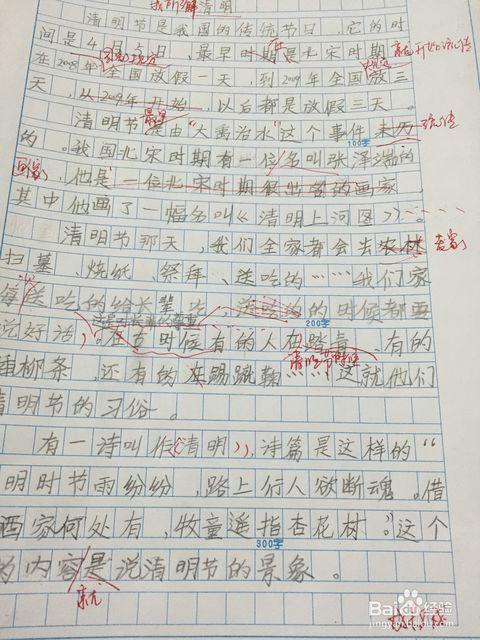 我所了解清明
清明节是我国的传统节日，它的时
间是4月5日，最早时期是北宋时期就开始流传
在2008年全国放假一天，到2009年全国放三
天，从2009年开始，以后都是放假三天。
清明节最早是由“大禹治水”这个事件来历流传
100字
的。我国北宋时期有一位名叫张泽端的
画家，他是一位北宋时期很出名的画家
其中他画了一幅名叫《清明上河图》
清明节那天，我们全家都会去农林老家
扫墓、烧纸、祭拜、送吃的……我们家
每送吃的给长辈
的时候都要
200字
说好话，在古时候有的人在踏青、有的
插柳条，还有的在踢蹴鞠……这就他们
清明节的习俗。
有一诗叫作《清明》，诗篇是这样的“
明时节雨纷纷，路上行人欲断魂。借
酒家何处有，牧童遥指杏花村。”这个
300字
为内容是说清明节的景象。
就
Baidu经验
jingyan.baidu.com